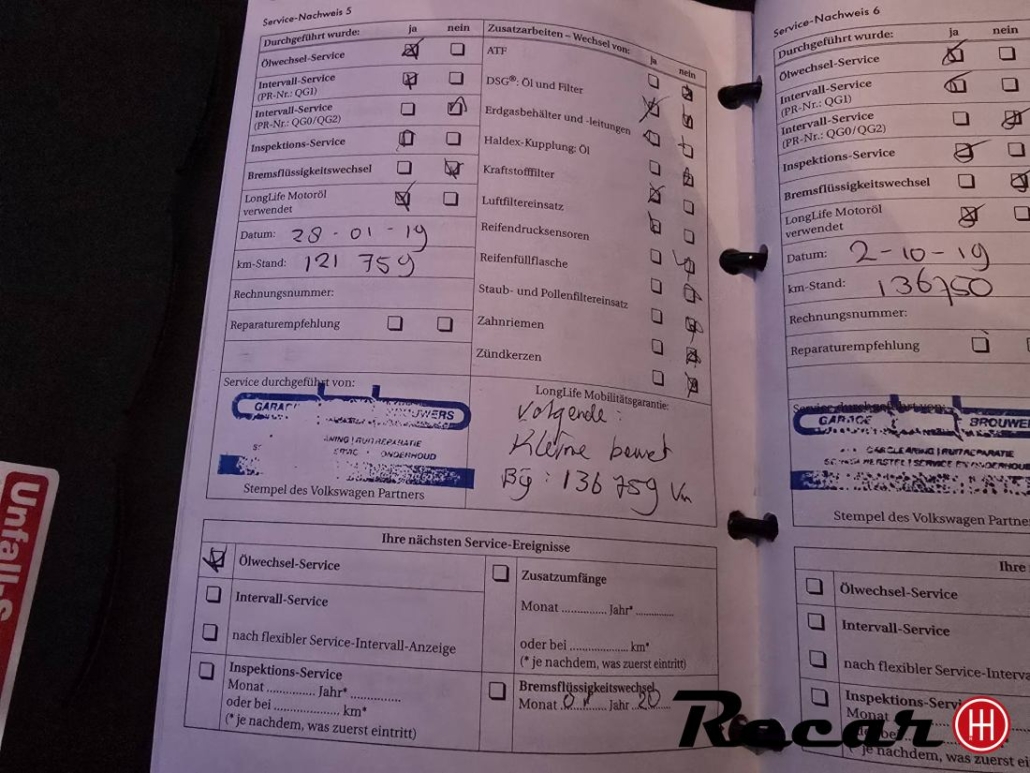 Service-Nachweis 5
Durchgeführt wurde: ja nein
Ölwechsel-Service
Intervall-Service
(PR-Nr.: QG1)
Intervall-Service
(PR-Nr.: QG0/QG2)
Inspektions-Service
Bremsflüssigkeitswechsel
LongLife Motoröl
verwendet
Datum: 28-01-19
km-Stand: 121 759
Rechnungsnummer:
Reparaturempfehlung
Zusatzarbeiten – Wechsel von: ja nein
ATF
DSG®: Öl und Filter
Erdgasbehälter und -leitungen
Haldex-Kupplung: Öl
Kraftstofffilter
Luftfiltereinsatz
Reifendrucksensoren
Reifenfüllflasche
Staub- und Pollenfiltereinsatz
Zahnriemen
Zündkerzen
Service durchgeführt von:
BROUWERS
ONDERHOUD
Stempel des Volkswagen Partners
LongLife Mobilitätsgarantie:
Volgende:
Kleine beurt
Bij: 136 759 km
Ihre nächsten Service-Ereignisse
Ölwechsel-Service
Intervall-Service
nach flexibler Service-Intervall-Anzeige
Inspektions-Service
Monat .............. Jahr* ..............
oder bei .................... km*
(* je nachdem, was zuerst eintritt)
Zusatzumfänge
Monat .............. Jahr* ..............
oder bei .................... km*
(* je nachdem, was zuerst eintritt)
Bremsflüssigkeitswechsel
Monat Jahr 20
Service-Nachweis 6
Durchgeführt wurde: ja nein
Ölwechsel-Service
Intervall-Service
(PR-Nr.: QG1)
Intervall-Service
(PR-Nr.: QG0/QG2)
Inspektions-Service
Bremsflüssigkeitswechsel
LongLife Motoröl
verwendet
Datum: 2-10-19
km-Stand: 136750
Rechnungsnummer:
Reparaturempfehlung
Service durchgeführt von:
GARAGE BROUWER
Stempel des Volkswagen Partne
Ihre
Ölwechsel-Service
Intervall-Service
nach flexibler Service-Interva
Inspektions-Servic
Monat
oder bei
(* je nachdem, was zuerst ei
Unfall-S
Recar H